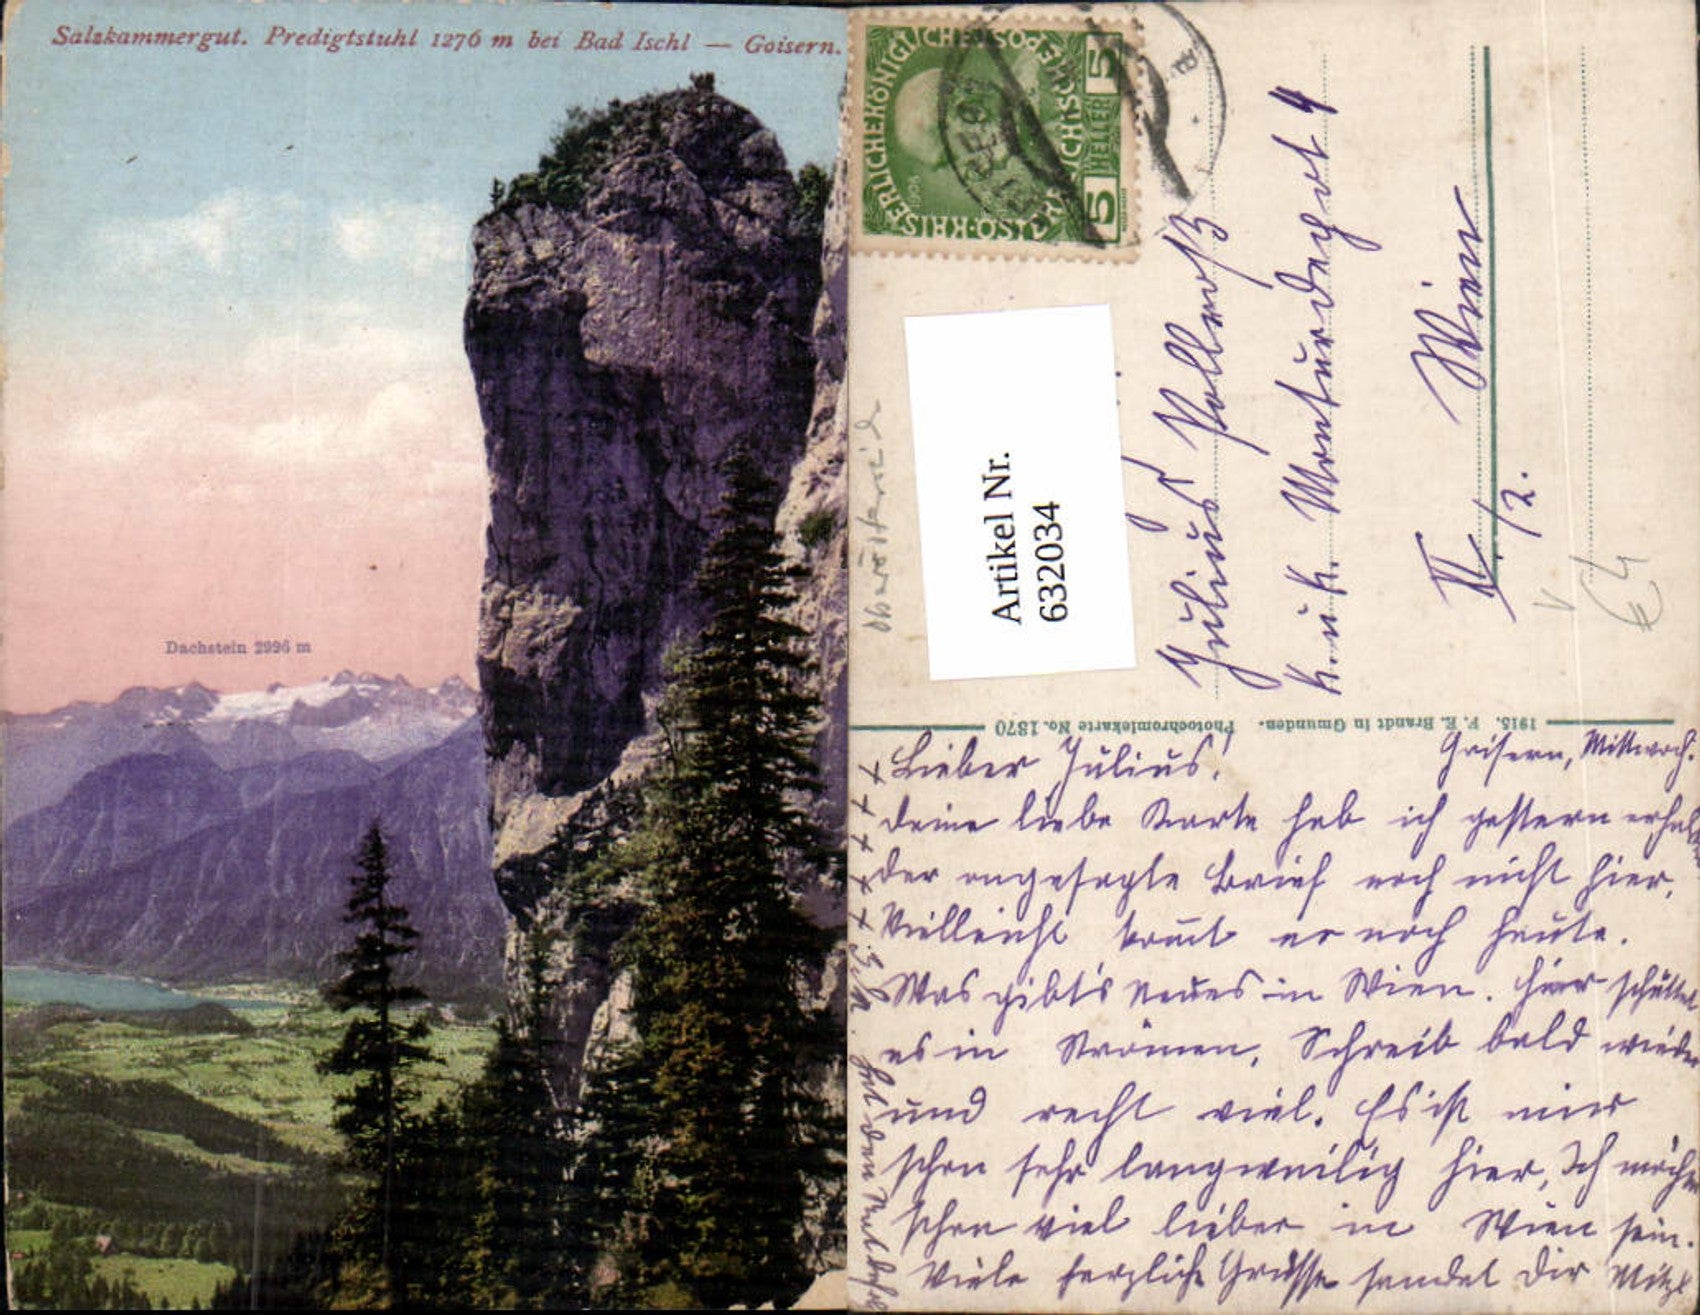 Salzkammergut. Predigtstuhl 1276 m bei Bad Ischl — Goisern.
Dachstein 2996 m
KAISERLICHE KÖNIGLICHE ÖSTERREICHISCHE POST
5 HELLER 5
1908
Oberösterreich
Artikel Nr.
632034
Julius
k. u. k. Monturdepot 4
Wien
/2.
V
€ 4
1915. F. E. Brandt in Gmunden. Photochromiekarte No. 1370
Goisern, Mittwoch.
Lieber Julius!
Deine liebe Karte hab ich gestern
der angesagte Brief noch nicht hier.
Vielleicht kommt er noch heute.
Was gibt's neues in Wien. Hier schüttet
es in Strömen. Schreib bald wieder
und recht viel. Es ist mir
schon sehr langweilig hier, Ich möchte
schon viel lieber in Wien sein.
Viele herzliche Grüsse sendet Dir Mitzi